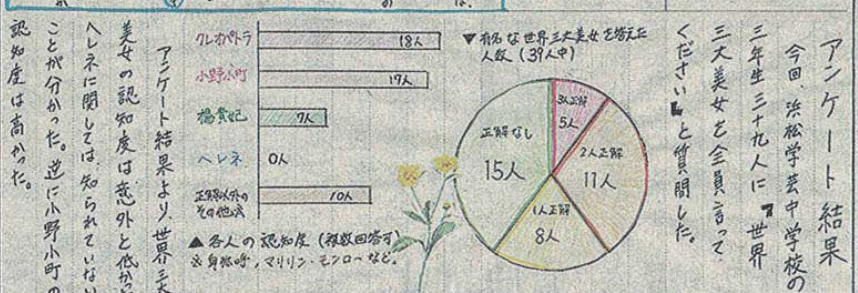 アンケート結果
今回、浜松学芸中学校の
三年生三十九人に『世界
三大美女を全員言って
ください』と質問した。
▼有名な世界三大美女を答えた
人数(39人中)
3人正解
5人
2人正解
11人
1人正解
8人
正解なし
15人
クレオパトラ
18人
小野小町
17人
楊貴妃
7人
ヘレネ
0人
正解以外の
その他
10人
▲各人の認知度(複数回答可)
※卑弥呼,マリリン・モンローなど。
アンケート結果より、世界三大
美女の認知度は意外と低か
ヘレネに関しては、知られていない
ことが分かった。逆に小野小町の
認知度は高かった。